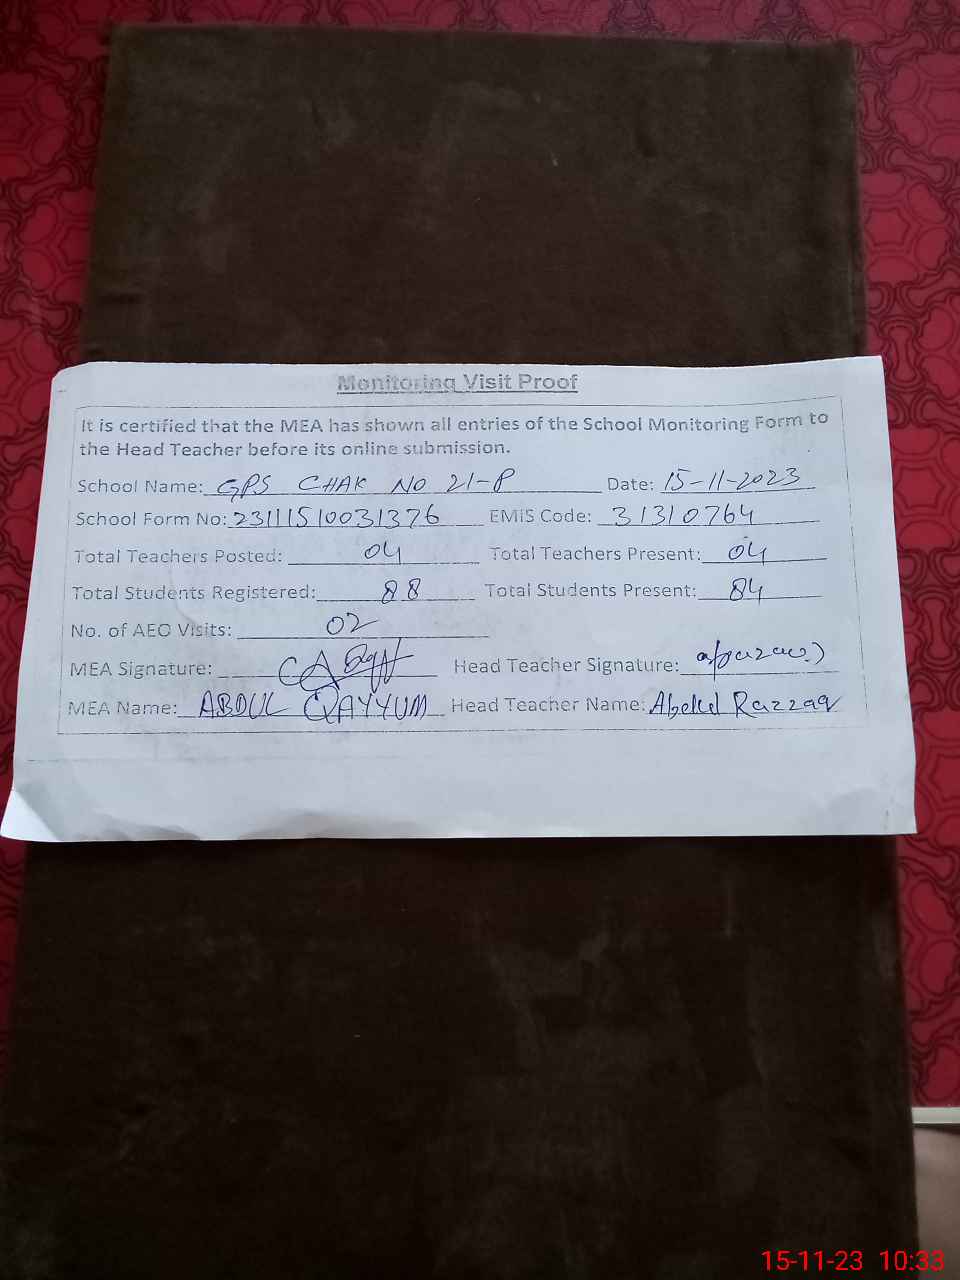 Monitoring Visit Proof
It is certified that the MEA has shown all entries of the School Monitoring Form to
the Head Teacher before its online submission.
School Name: GPS CHAK NO 21-P Date: 15-11-2023
School Form No: 23111510031376 EMIS Code: 31310764
Total Teachers Posted: 04 Total Teachers Present: 04
Total Students Registered: 88 Total Students Present: 84
No. of AEO Visits: 02
MEA Signature: Head Teacher Signature:
MEA Name: ABDUL QAYYUM Head Teacher Name: Abdul Razzaq
15-11-23 10:33